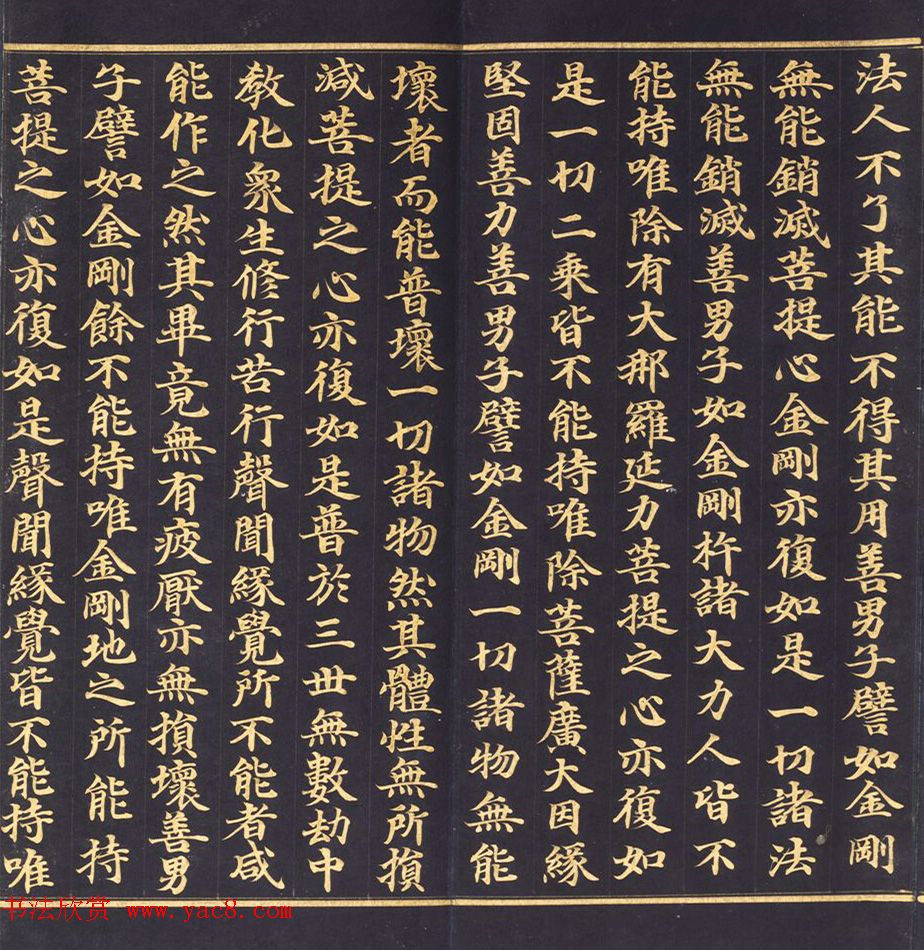 法人不了其能不得其用善男子譬如金剛
無能銷滅菩提心金剛亦復如是一切諸法
無能銷滅善男子如金剛杵諸大力人皆不
能持唯除有大那羅延力菩提之心亦復如
是一切二乘皆不能持唯除菩薩廣大因緣
堅固善力善男子譬如金剛一切諸物無能
壞者而能普壞一切諸物然其體性無所損
減菩提之心亦復如是普於三世無數劫中
教化眾生修行苦行聲聞緣覺所不能者咸
能作之然其畢竟無有疲厭亦無損壞善男
子譬如金剛餘不能持唯金剛地之所能持
菩提之心亦復如是聲聞緣覺皆不能持唯
书法欣赏 www.yac8.com